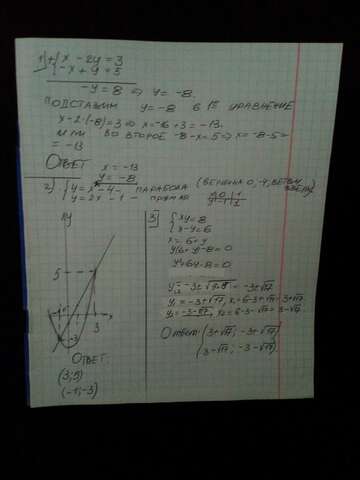 1) { x - 2y = 3
-x + y = 5
-y = 8 ⇒ y = -8.
ПОДСТАВИМ y = -8 в 1е УРАВНЕНИЕ
x - 2·(-8) = 3 ⇒ x = -16 + 3 = -13.
ИЛИ ВО ВТОРОЕ -8 - x = 5 ⇒ x = -8 - 5 =
= -13
ОТВЕТ x = -13
y = -8
2) { y = x² - 4 - ПАРАБОЛА (ВЕРШИНА 0, -4, ВЕТВИ ВВЕРХ)
y = 2x - 1 - ПРЯМАЯ
x 0 1
y -1 1
y
5
-1
3
x
-3
ОТВЕТ:
(3; 5)
(-1; -3)
3) { xy = 8
x - y = 6
x = 6 + y
y(6 + y) - 8 = 0
y² + 6y - 8 = 0
y₁,₂ = -3 ± √(9+8) = -3 ± √17
y₁ = -3 + √17, x₁ = 6 - 3 + √17 = 3 + √17
y₂ = -3 - √17, x₂ = 6 - 3 - √17 = 3 - √17
Ответ: (3 + √17; -3 + √17)
(3 - √17; -3 - √17)